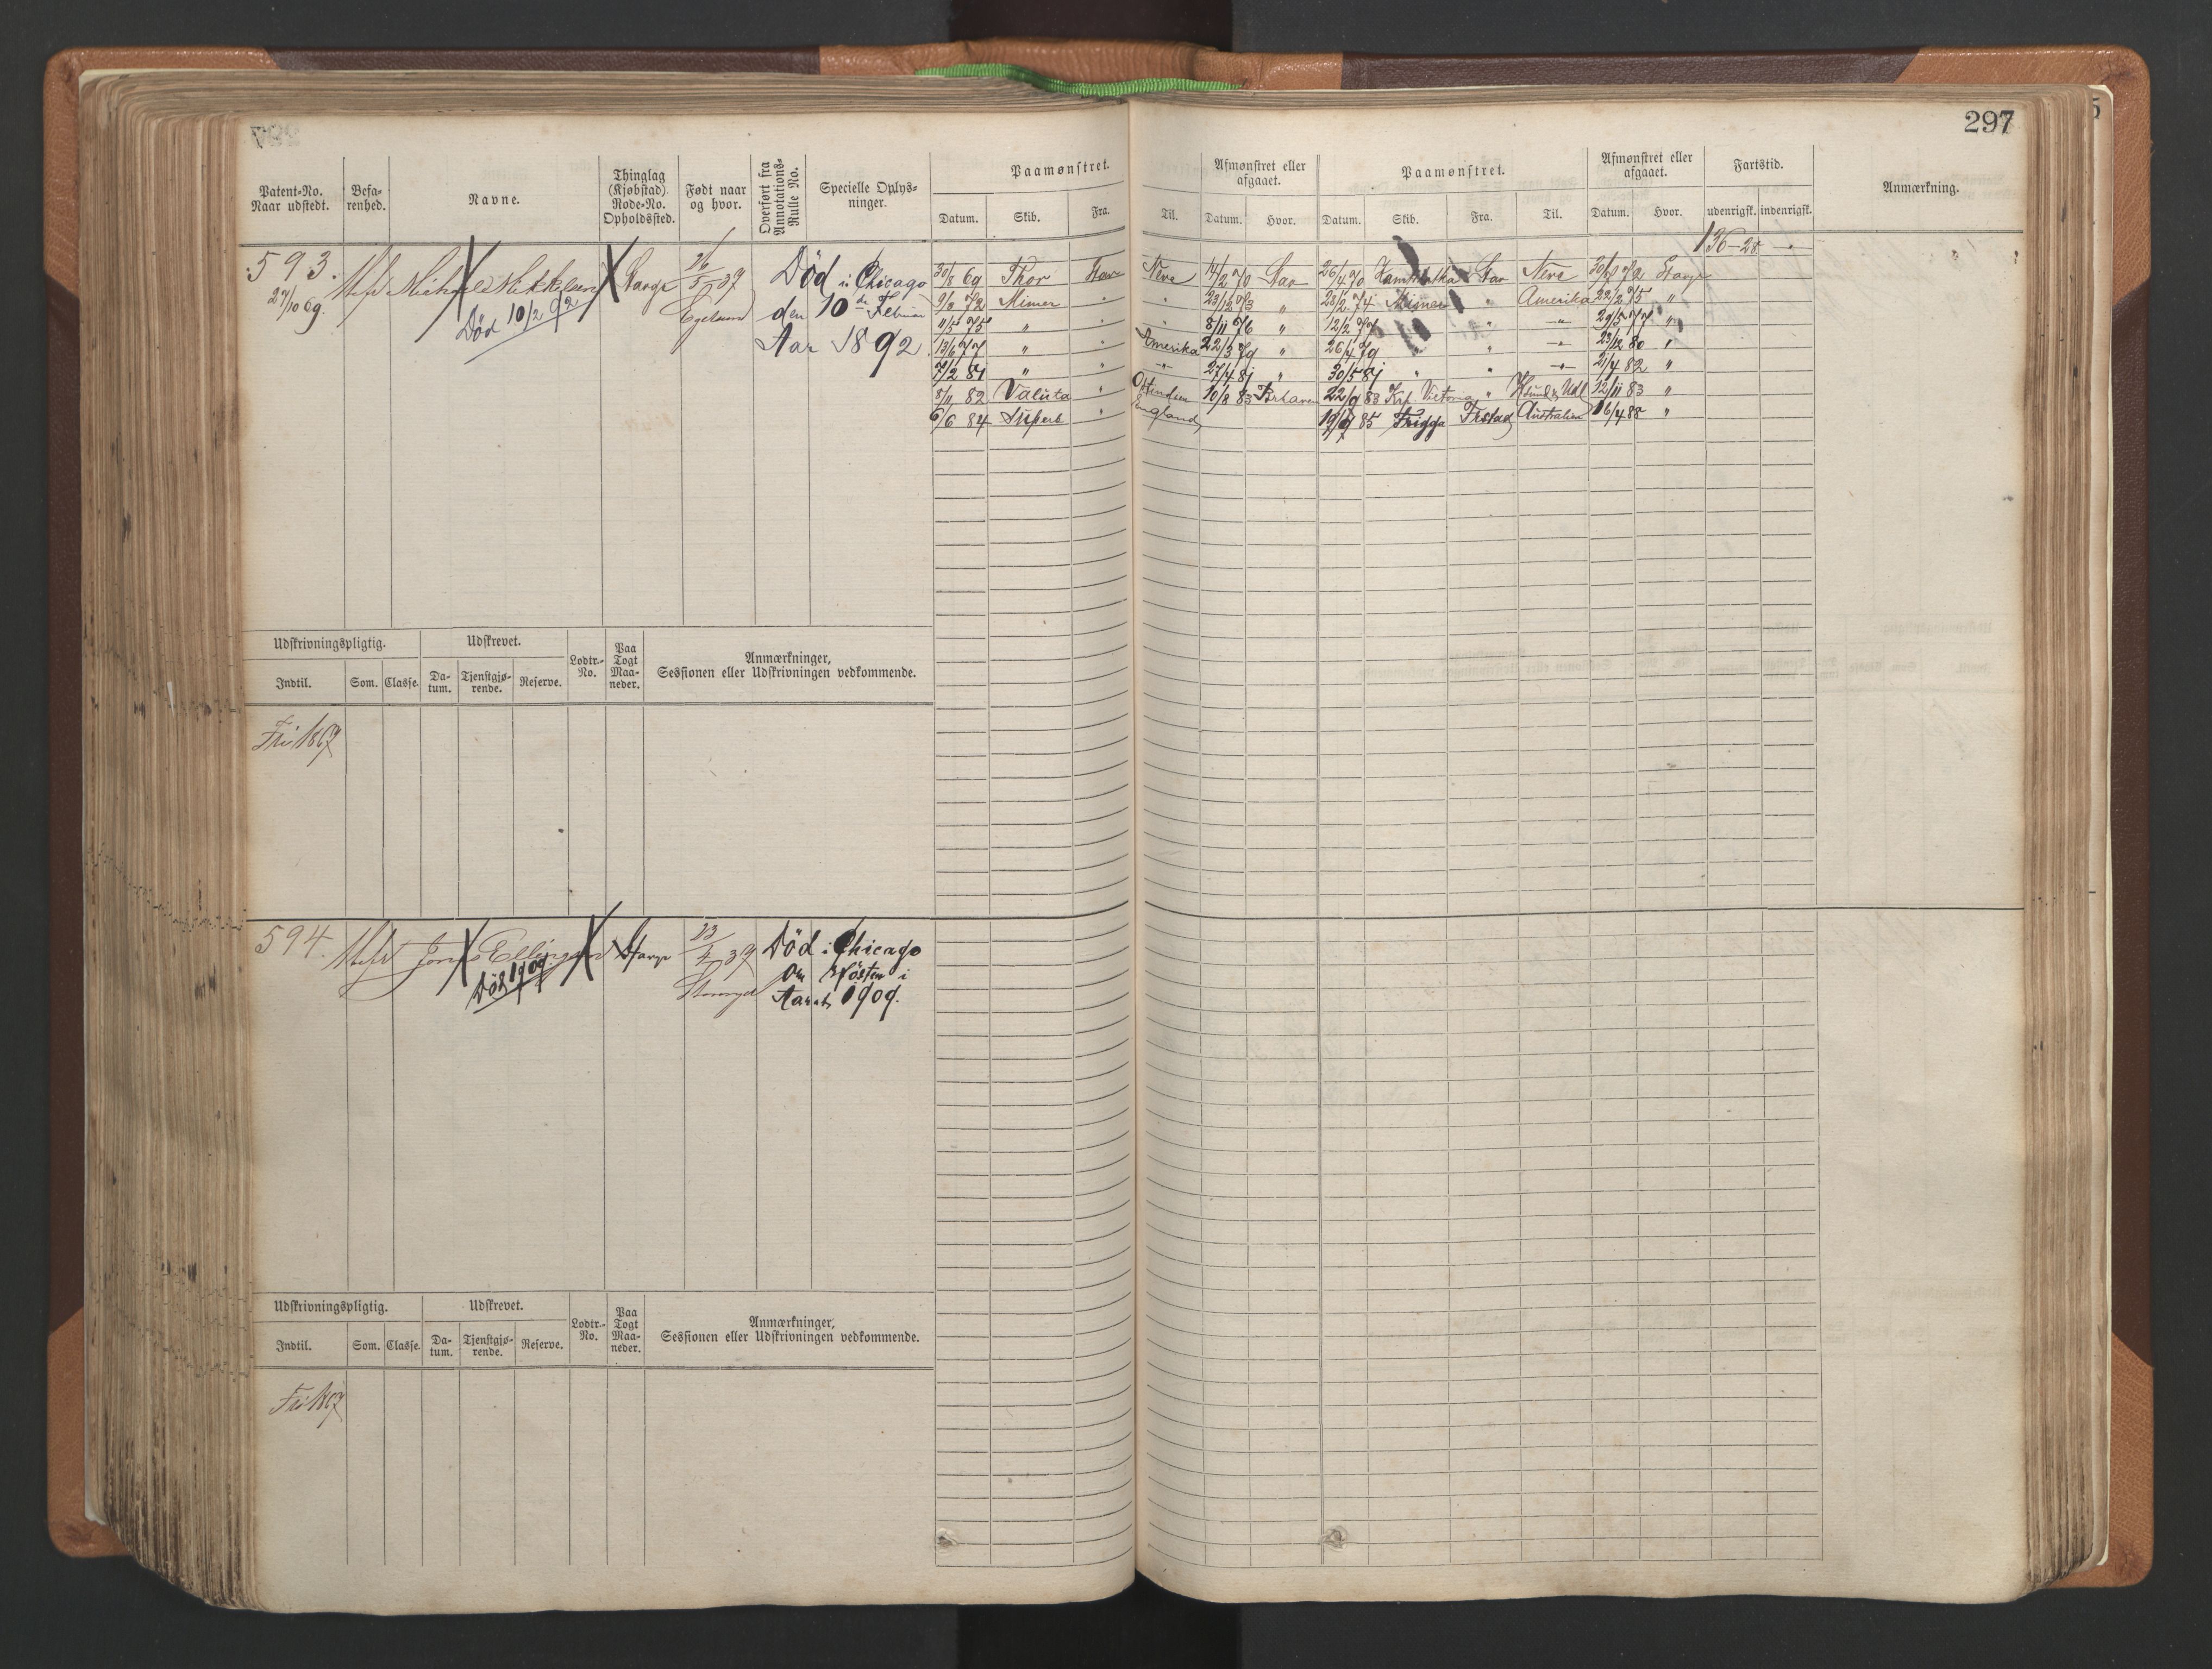 297
Patent-No. Naar udstedt.
Befarenhed.
Navne.
Thinglag (Kjøbstad). Rode-No. Opholdssted.
Født naar og hvor.
Overført fra Annotations-Rulle No.
Specielle Oplysninger.
Paamønstret.
Datum. Skib. Fra. Til.
Afmønstret eller afgaaet.
Datum. Hvor.
Paamønstret.
Datum. Skib. Fra. Til.
Afmønstret eller afgaaet.
Datum. Hvor.
Fartstid.
udenrigsk. indenrigsk.
Anmærkning.
136-28
593.
27/10 69.
Michael Mikkelsen
Død 10/2 92
Stavgr
26/5 37
Egersund
Død i Chicago
den 10de Februar
Aar 1892
30/8 69 Thor Stav Neva 14/2 70 Stav 26/4 70 Kamschatka Stav Neva 30/8 72 Stavgr
9/9 72 Mimer " " 23/12 73 " 28/2 74 Mimer " Amerika 22/2 75 "
11/5 75 " " " 8/11 76 " 12/2 77 " " 29/5 77 "
13/6 77 " " Amerika 22/3 79 " 26/4 79 " " 23/12 80 "
7/2 81 " " 27/4 81 " 30/5 81 " " 21/4 82 "
8/11 82 Valuta " Ostindien 10/8 83 22/9 83 Krp. Victoria " Hull & Udl 12/11 83 "
6/6 84 Superb " England 19/9 85 Frigga Frstad Australien 16/4 88 "
Udskrivningspligtig.
Indtil. Som. Classe.
Udskrevet.
Datum. Tjenstgjørende. Reserve.
Lodtr.-No.
Paa Togt Maaneder.
Anmærkninger,
Sessionen eller Udskrivningen vedkommende.
Fri 1867
594.
Jonas Ellingsen
Død 1909
Stavgr
23/4 39
Stavanger
Død i Chicago
om Høsten i
Aaret 1909.
Udskrivningspligtig.
Indtil. Som. Classe.
Udskrevet.
Datum. Tjenstgjørende. Reserve.
Lodtr.-No.
Paa Togt Maaneder.
Anmærkninger,
Sessionen eller Udskrivningen vedkommende.
Fri 1867